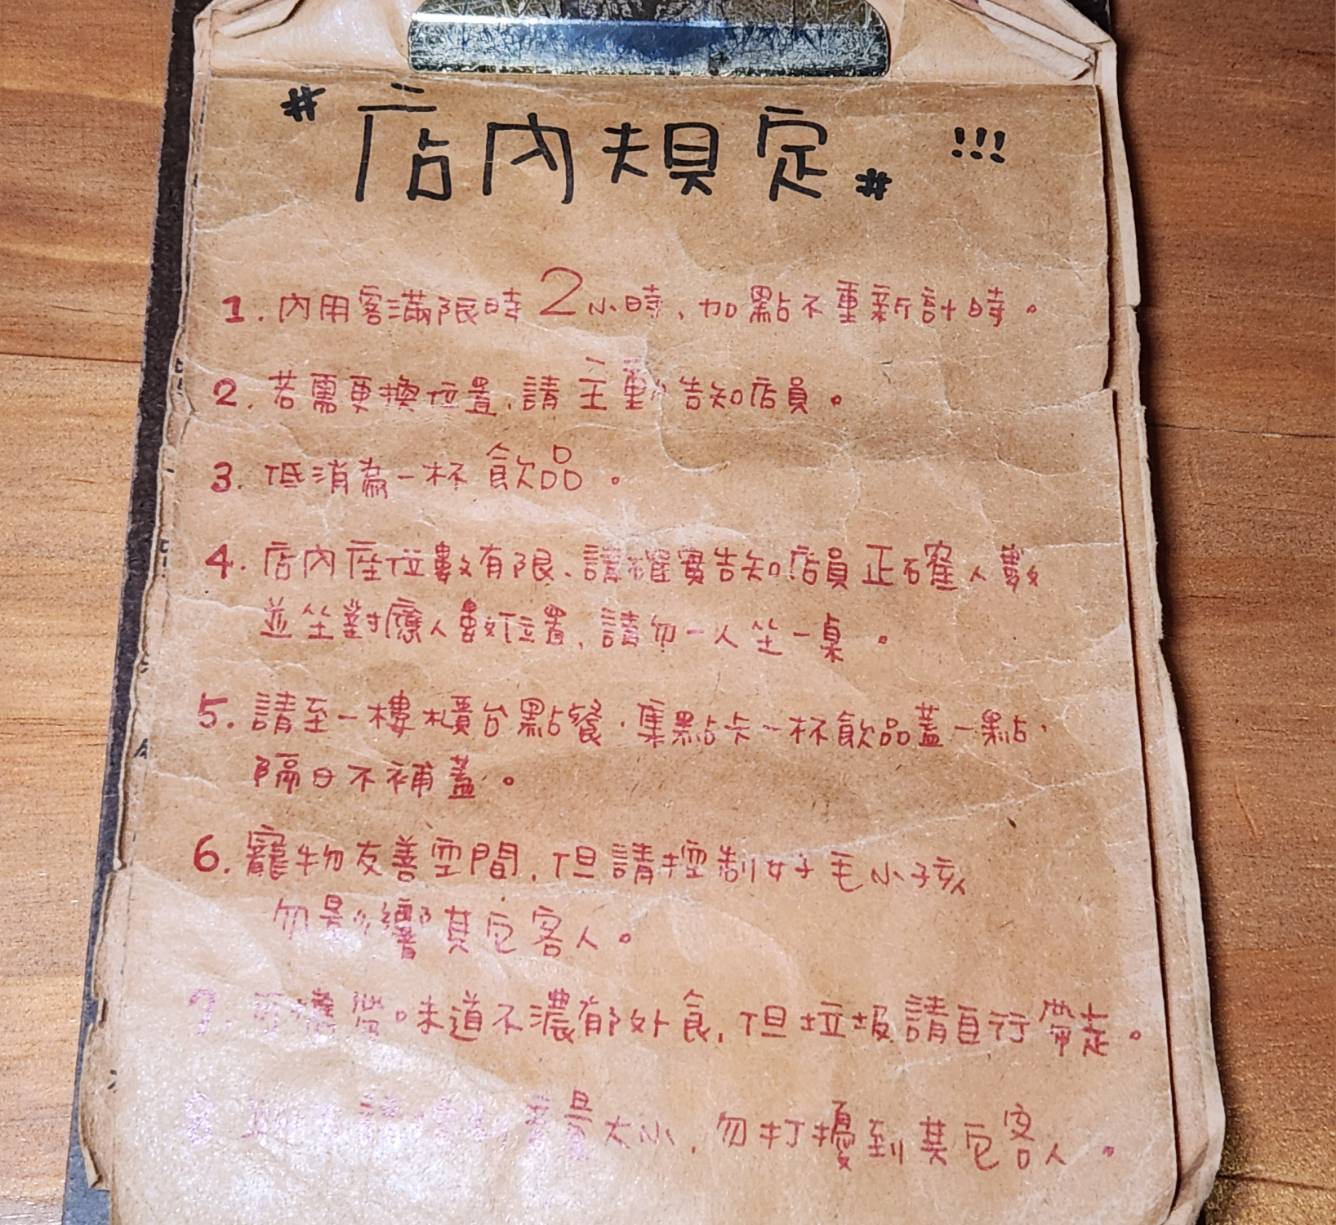 #店內規定。# !!!
1. 內用客滿限時2小時、加點不重新計時。
2. 若需更換位置,請主動告知店員。
3. 低消為一杯飲品。
4. 店內座位數有限、請確實告知店員正確人數
並坐對應人數位置,請勿一人坐一桌。
5. 請至一樓櫃台點餐,集點卡一杯飲品蓋一點,
隔日不補蓋。
6. 寵物友善空間,但請控制好毛小孩
勿影響其它客人。
7. 可攜帶味道不濃郁外食,但垃圾請自行帶走。
請 音量大小,勿打擾到其它客人。